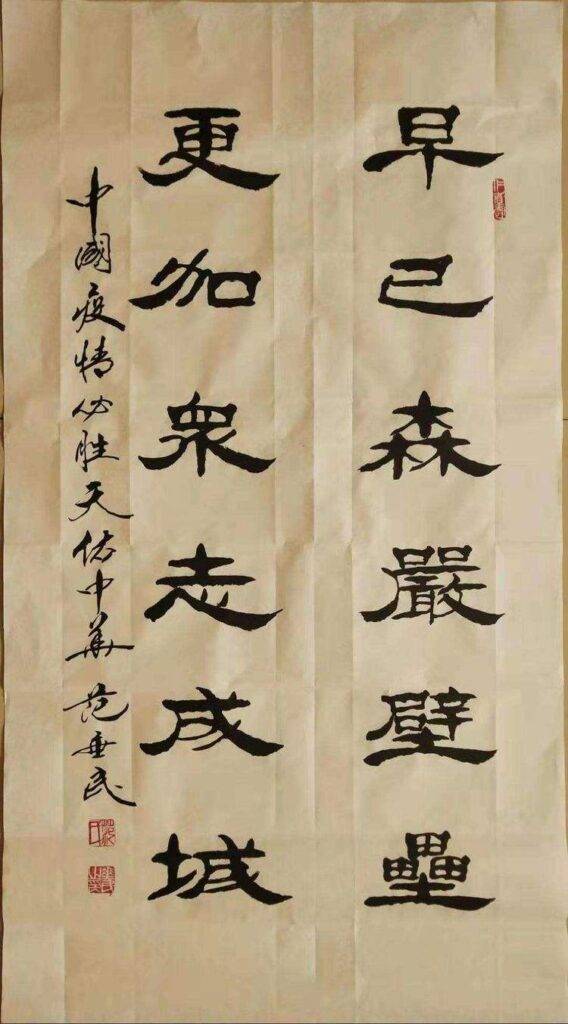 早已森嚴壁壘
更加衆志成城
中國疫情必胜天佑中華 范垂民